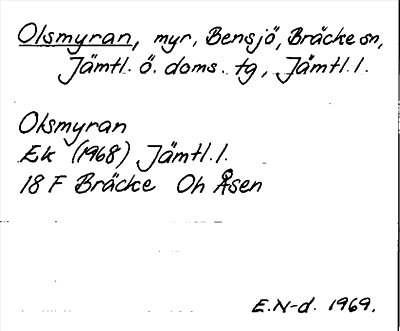 Olsmyran, myr, Bensjö, Bräcke sn,
Jämtl. ö. doms. tg, Jämtl. l.
Olsmyran
Ek (1968) Jämtl. l.
18 F Bräcke Oh Åsen
E.N-d. 1969.